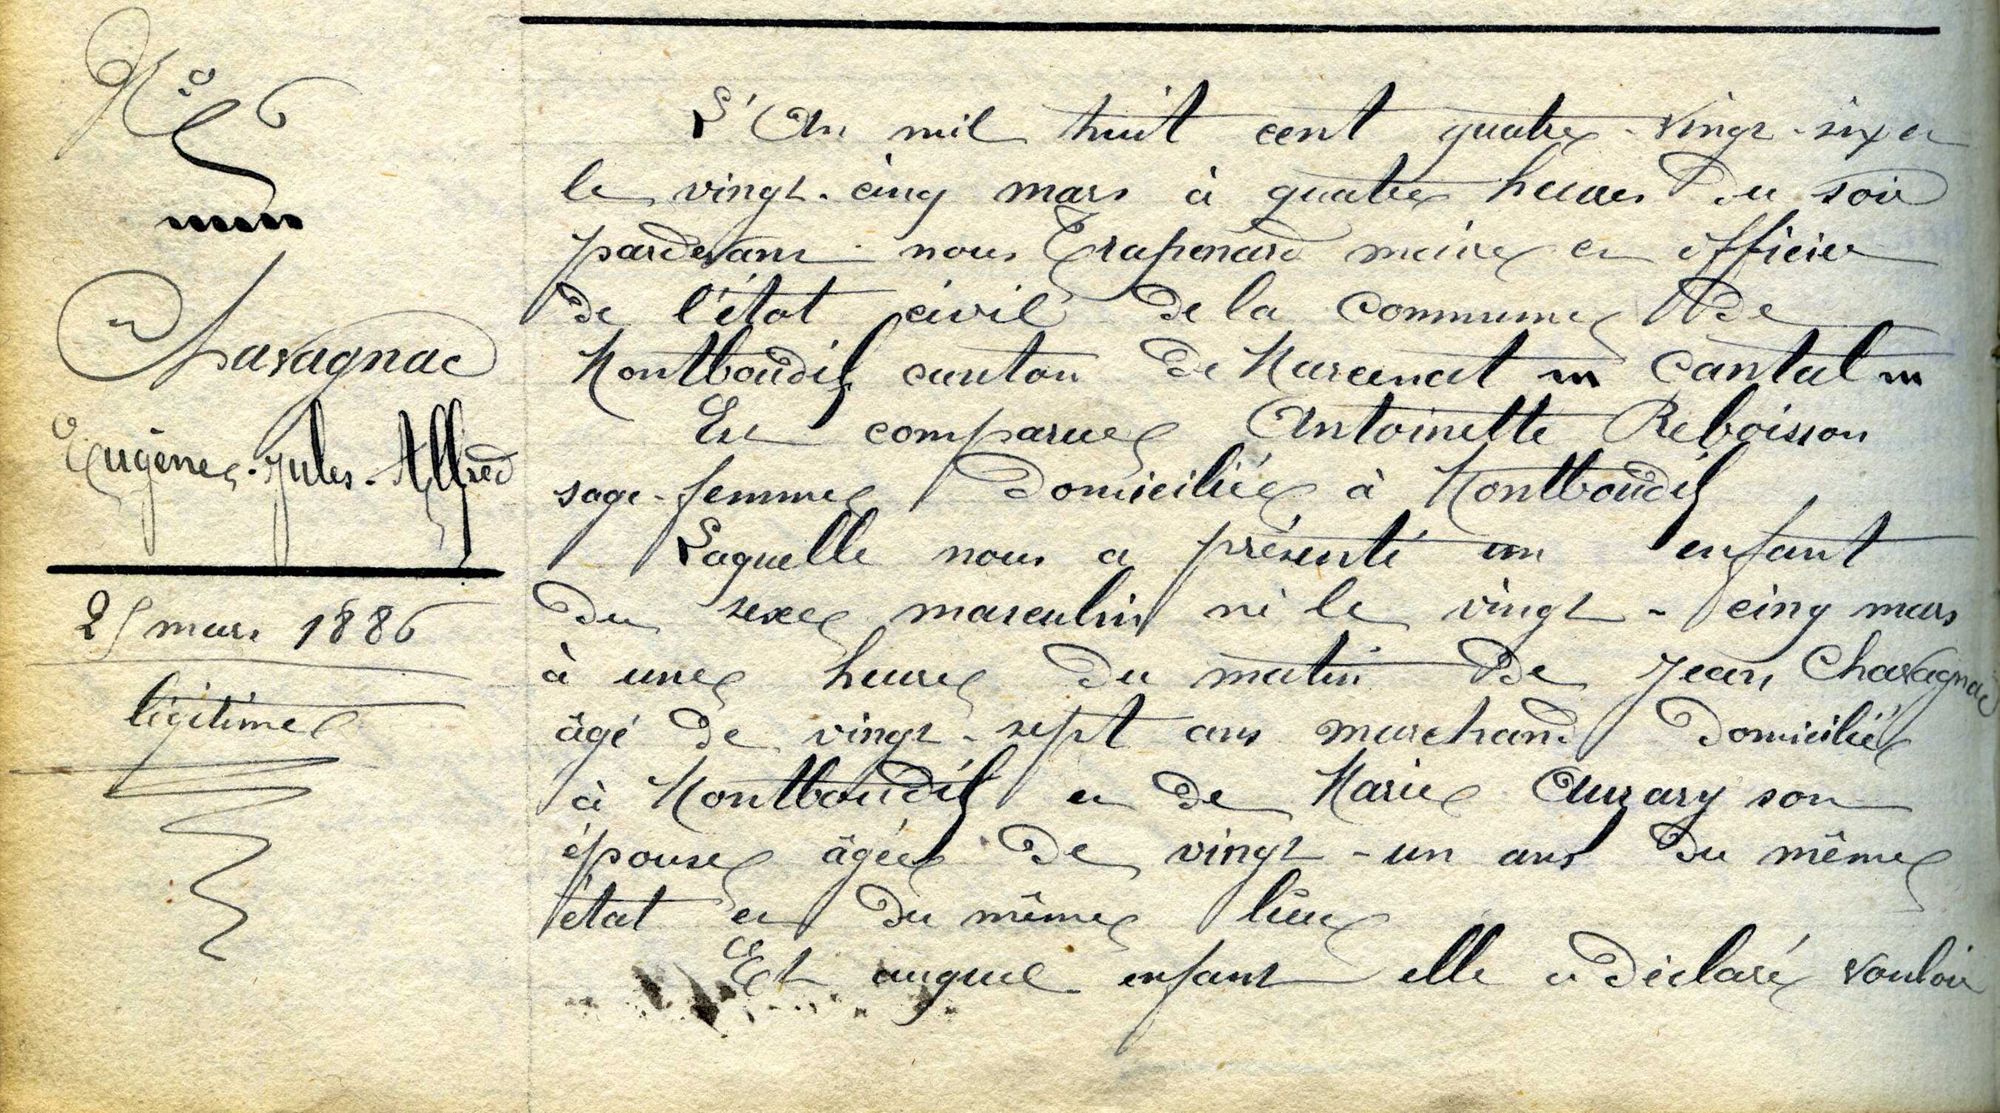 N° 5
Chavagnac
Eugène-Jules-Alfred
25 mars 1886
légitime
L'An mil huit cent quatre-vingt-six et
le vingt-cinq mars à quatre heures du soir
pardevant nous Trapenard maire et officier
de l'état civil de la commune de
Montboudif canton de Marcenat Cantal
Est comparue Antoinette Reboisson
sage-femme domiciliée à Montboudif
Laquelle nous a présenté un enfant
du sexe masculin né le vingt-cinq mars
à une heure du matin de Jean Chavagnac
âgé de vingt-sept ans marchand domicilié
à Montboudif et de Marie Auzary son
épouse âgée de vingt-un ans du même
état et du même lieu
Et auquel enfant elle a déclaré vouloir